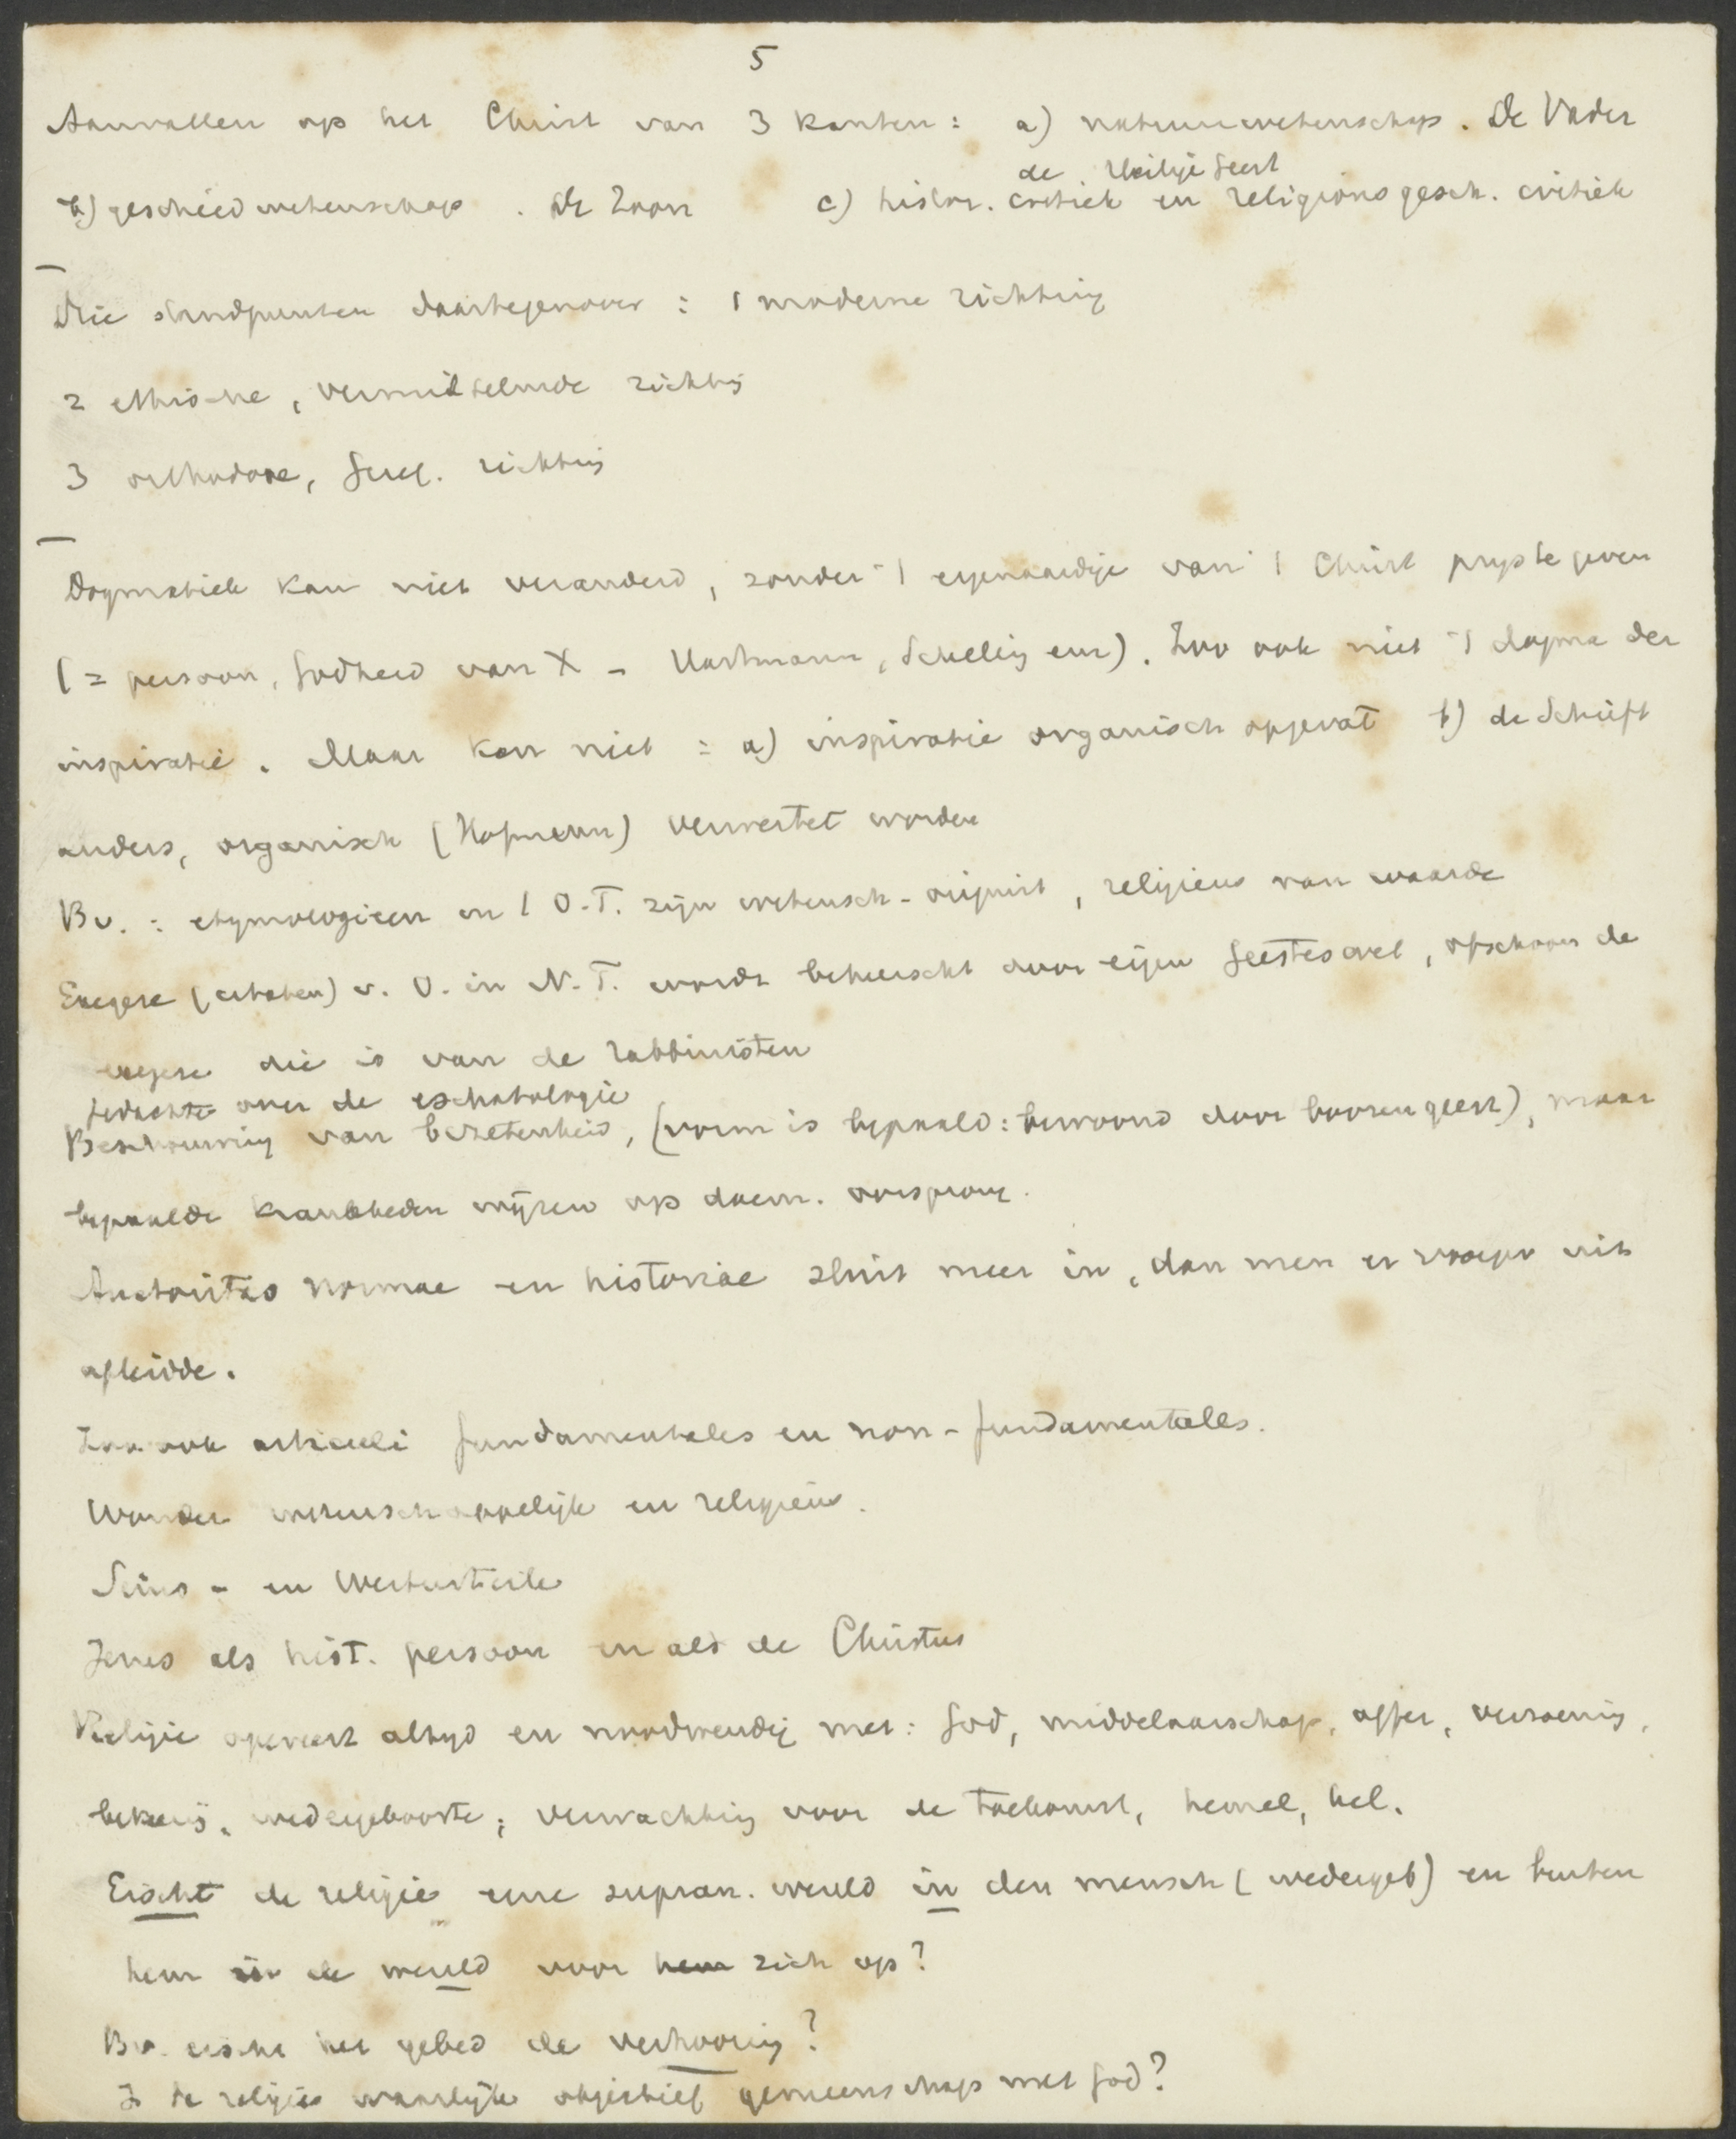 5
Aanvallen op het Christ van 3 kanten : a) natuurwetenschap . De Vader
de Heilige Geest
b) geschiedwetenschap . De Zoon c) histor. critiek en religionsgesch. critiek
Drie standpunten daartegenover : 1 moderne richting
2 ethische , vermittelnde richting
3 orthodoxe, Geref. richting
Dogmatiek kan niet veranderd , zonder 't eigenaardige van 't Christ prijs te geven
( = persoon , Godheid van X - Hartmann , Schelling enz ) . Zoo ook niet 't dogma der
inspiratie . Maar kan niet : a) inspiratie organisch opgevat b) de Schrift
anders, organisch ( Hofmann ) verwertet worden
Bv. : etymologieen in 't O.T. zijn wetensch - onjuist , religieus van waarde
Exegese ( citaten ) v. O. in N. T. wordt beheerscht door eigen Geestes , ofschoon de
exegese die is van de rabbinisten
gedachte over de eschatologie
Beschouwing van bezetenheid , ( vorm is bepaald : bewoond door boozen geest ) , maar
bepaalde krankheden wijzen op daem. oorsprong .
Auctoritas normae en historiae sluit meer in , dan men er vroeger uit
afleidde .
Zoo ook articuli fundamentales en non - fundamentales .
Wonder wetenschappelijk en religieus .
Seins - en Werturteile
Jezus als hist. persoon en als de Christus
Religie opereert altyd en noodwendig met : God, middelaarschap , offer , verzoening ,
bekeering . wedergeboorte ; verwachting voor de toekomst , hemel , hel .
Eischt de religie eene supran. wereld in den mensch ( wedergeb ) en buiten
hem in de wereld voor hem zich op ?
Bv. eischt het gebed de verhooring ?
Is de religie waarlijk objectief gemeenschap met God ?